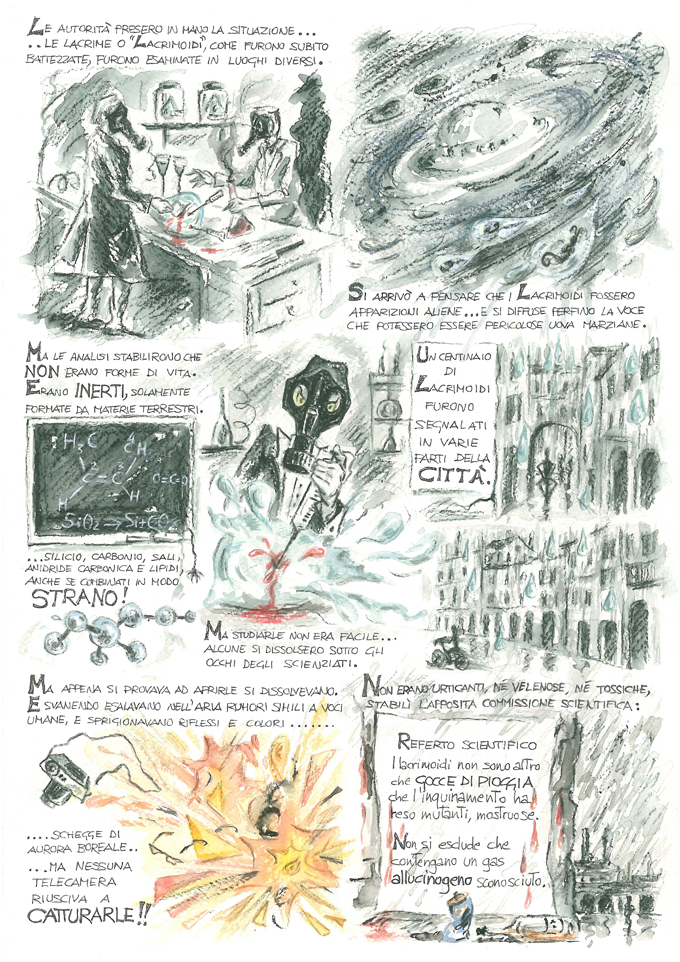 LE AUTORITÀ PRESERO IN MANO LA SITUAZIONE...
..LE LACRIME O "LACRIMOIDI", COME FURONO SUBITO
BATTEZZATE, FURONO ESAMINATE IN LUOGHI DIVERSI.
SI ARRIVÒ A PENSARE CHE I LACRIMOIDI FOSSERO
APPARIZIONI ALIENE...E SI DIFFUSE PERFINO LA VOCE
CHE POTESSERO ESSERE PERICOLOSE UOVA MARZIANE.
MA LE ANALISI STABILIRONO CHE
NON ERANO FORME DI VITA..
ERANO INERTI, SOLAMENTE
FORMATE DA MATERIE TERRESTRI.
H3C
CH3
C=C
O=C=O
H
H
SiO2 → Si+CO2
...SILICIO, CARBONIO, SALI,
ANIDRIDE CARBONICA E LIPIDI
ANCHE SE COMBINATI IN MODO
STRANO!
MA STUDIARLE NON ERA FACILE...
ALCUNE SI DISSOLSERO SOTTO GLI
OCCHI DEGLI SCIENZIATI.
UN CENTINAIO
DI
LACRIMOIDI
FURONO
SEGNALATI
IN VARIE
PARTI DELLA
CITTÀ.
MA APPENA SI PROVAVA AD APRIRLE SI DISSOLVEVANO.
E SVANENDO ESALAVANO NELL'ARIA RUMORI SIMILI A VOCI
UMANE, E SPRIGIONAVANO RIFLESSI E COLORI .......
....SCHEGGE DI
AURORA BOREALE..
...MA NESSUNA
TELECAMERA
RIUSCIVA A
CATTURARLE!!
NON ERANO URTICANTI, NÉ VELENOSE, NÉ TOSSICHE,
STABILÌ L'APPOSITA COMMISSIONE SCIENTIFICA:
REFERTO SCIENTIFICO
I lacrimoidi non sono altro
che GOCCE DI PIOGGIA
che l'inquinamento ha
reso mutanti, mostruose.
Non si esclude che
contengano un gas
allucinogeno sconosciuto.